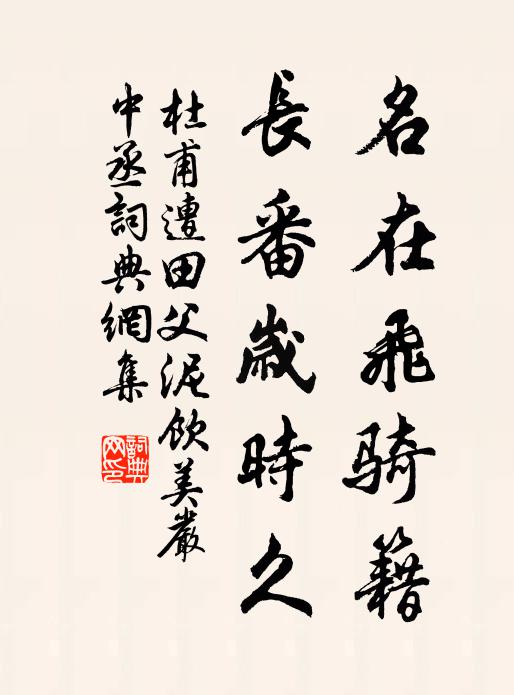 名在飛騎籍
長番歲時久
杜甫遭田父泥飲美嚴
中丞詞典網集
詞典
网印